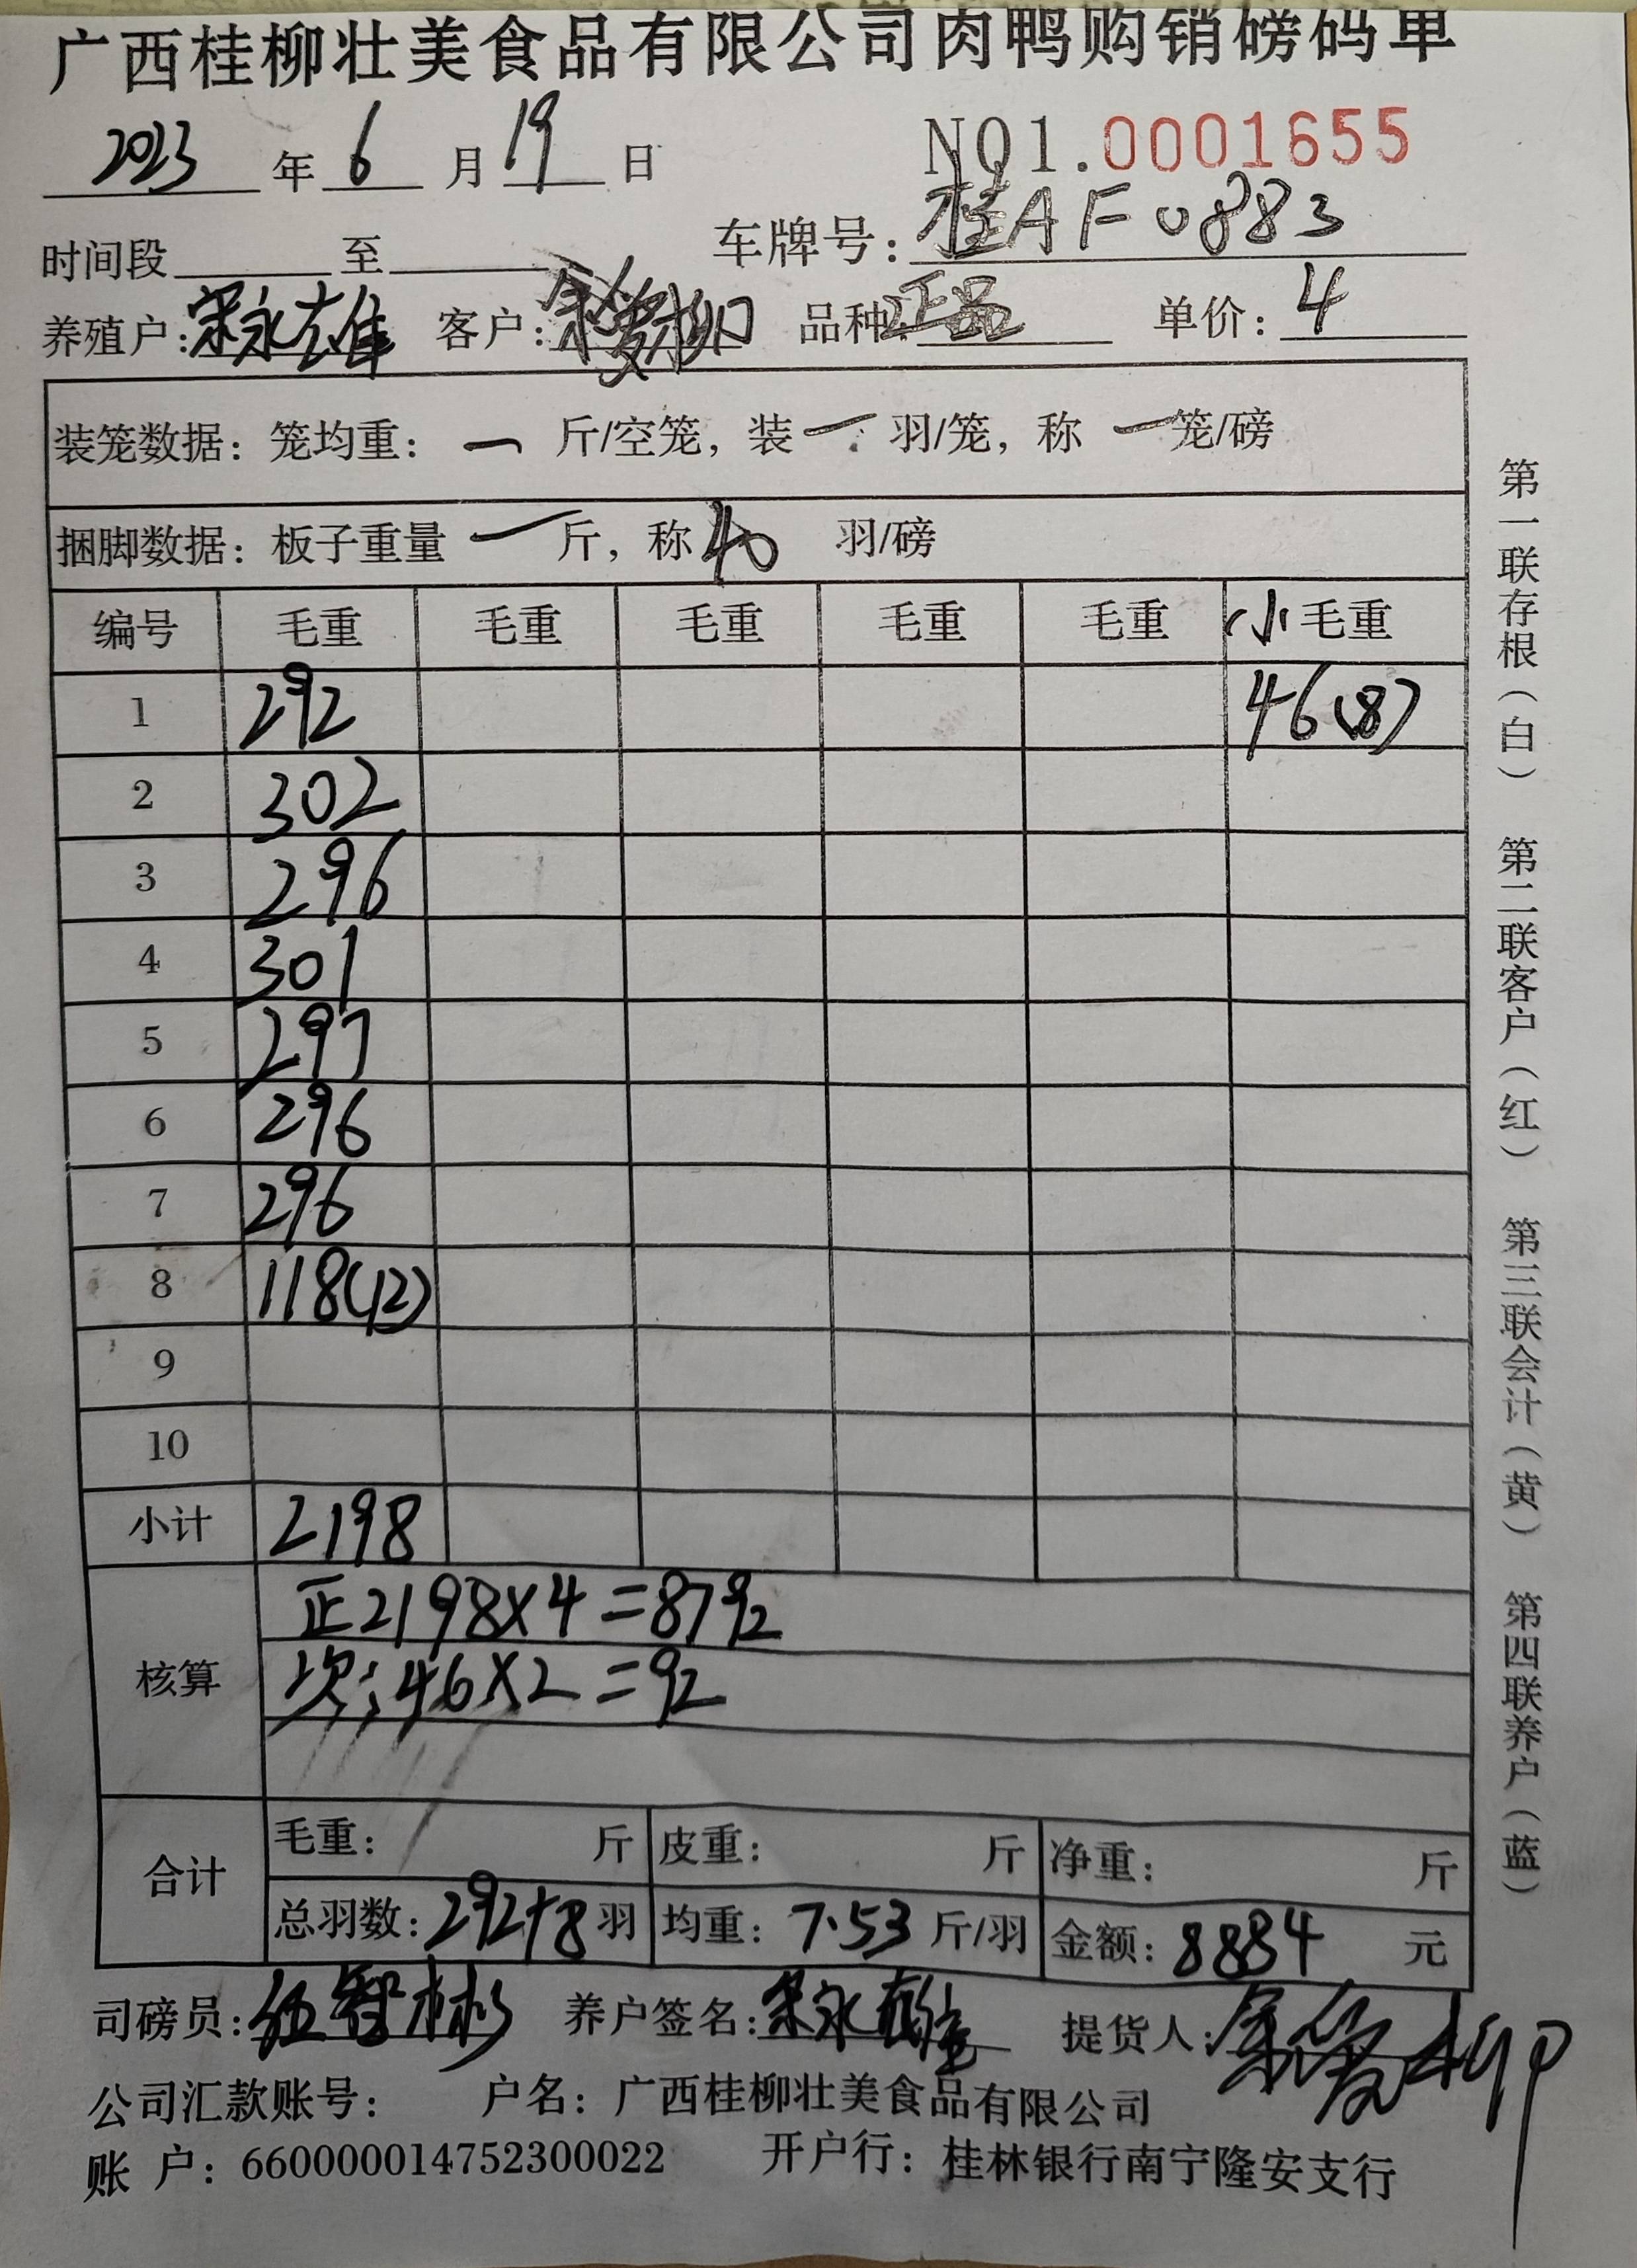 广西桂柳壮美食品有限公司肉鸭购销磅码单
2023 年 6 月 19 日 NO1.0001655
时间段 至 车牌号: 桂AF0883
养殖户: 宋永雄 客户: 余爱柳 品种: 正品 单价: 4
装笼数据: 笼均重: 一 斤/空笼, 装 一 羽/笼, 称 一 笼/磅
捆脚数据: 板子重量 一 斤, 称 40 羽/磅
编号 毛重 毛重 毛重 毛重 毛重 小毛重
1 292 46(8)
2 302
3 296
4 301
5 297
6 296
7 296
8 118(12)
9
10
小计 2198
核算 正2198×4=8792
次:46×2=92
合计 毛重: 斤 皮重: 斤 净重: 斤
总羽数: 292+8 羽 均重: 7.53 斤/羽 金额: 8884 元
司磅员: 伍智彬 养户签名: 宋永雄 提货人: 余爱柳
公司汇款账号: 户名: 广西桂柳壮美食品有限公司
账 户: 660000014752300022 开户行: 桂林银行南宁隆安支行
第一联存根(白) 第二联客户(红) 第三联会计(黄) 第四联养户(蓝)